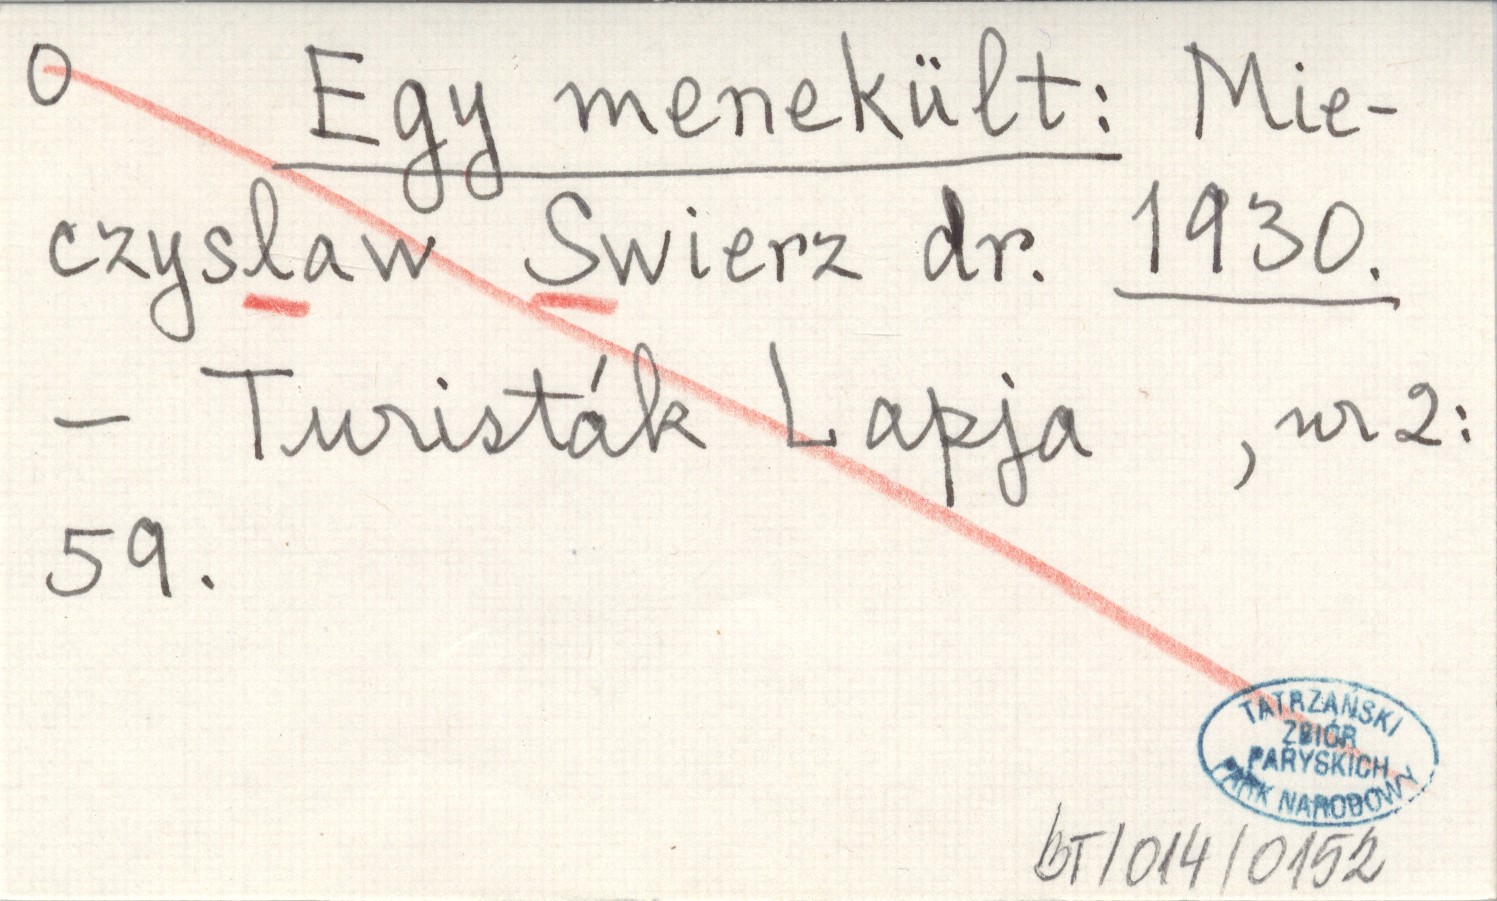 O Egy menekült: Mie-
czyslaw Swierz dr. 1930.
– Turisták Lapja , nr 2:
59.
TATRZAŃSKI
ZBIÓR
PARYSKICH
PARK NARODOWY
BT/014/0152